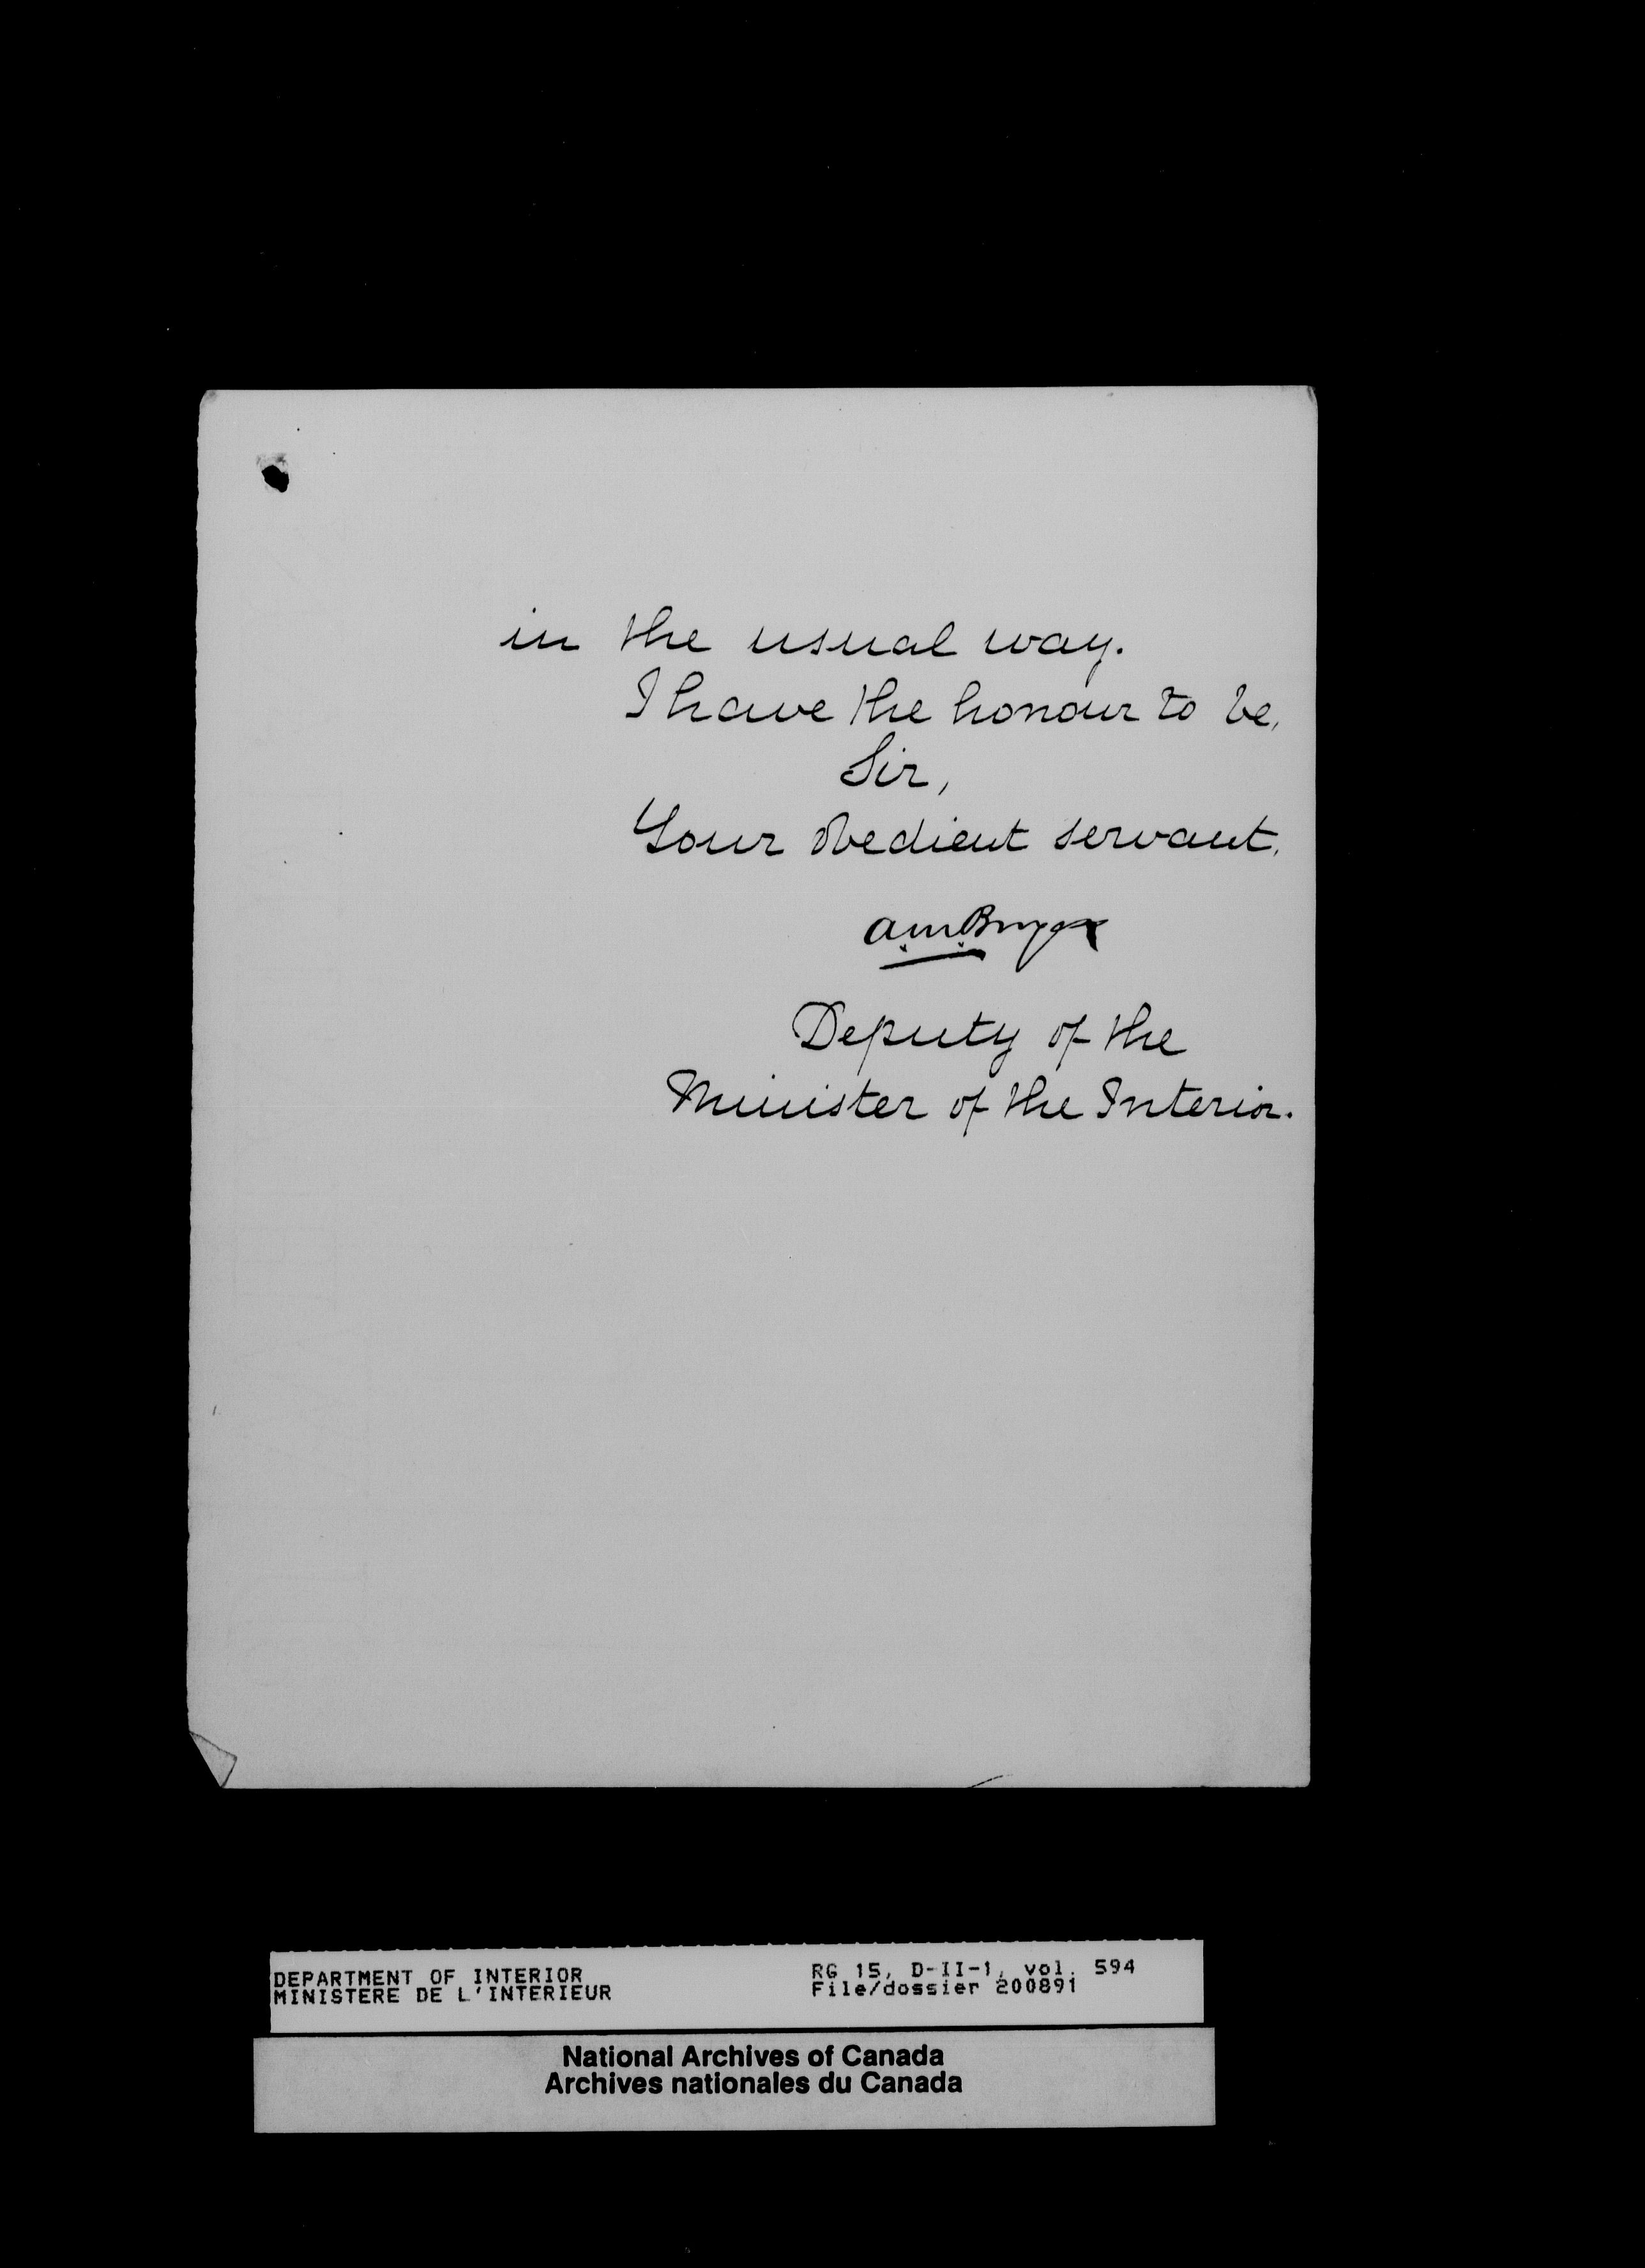 in the usual way.
I have the honour to be,
Sir,
Your obedient servant,
Deputy of the
Minister of the Interior.
DEPARTMENT OF INTERIOR
MINISTERE DE L'INTERIEUR
RG 15, D-II-1, vol. 594
File/dossier 200891
National Archives of Canada
Archives nationales du Canada